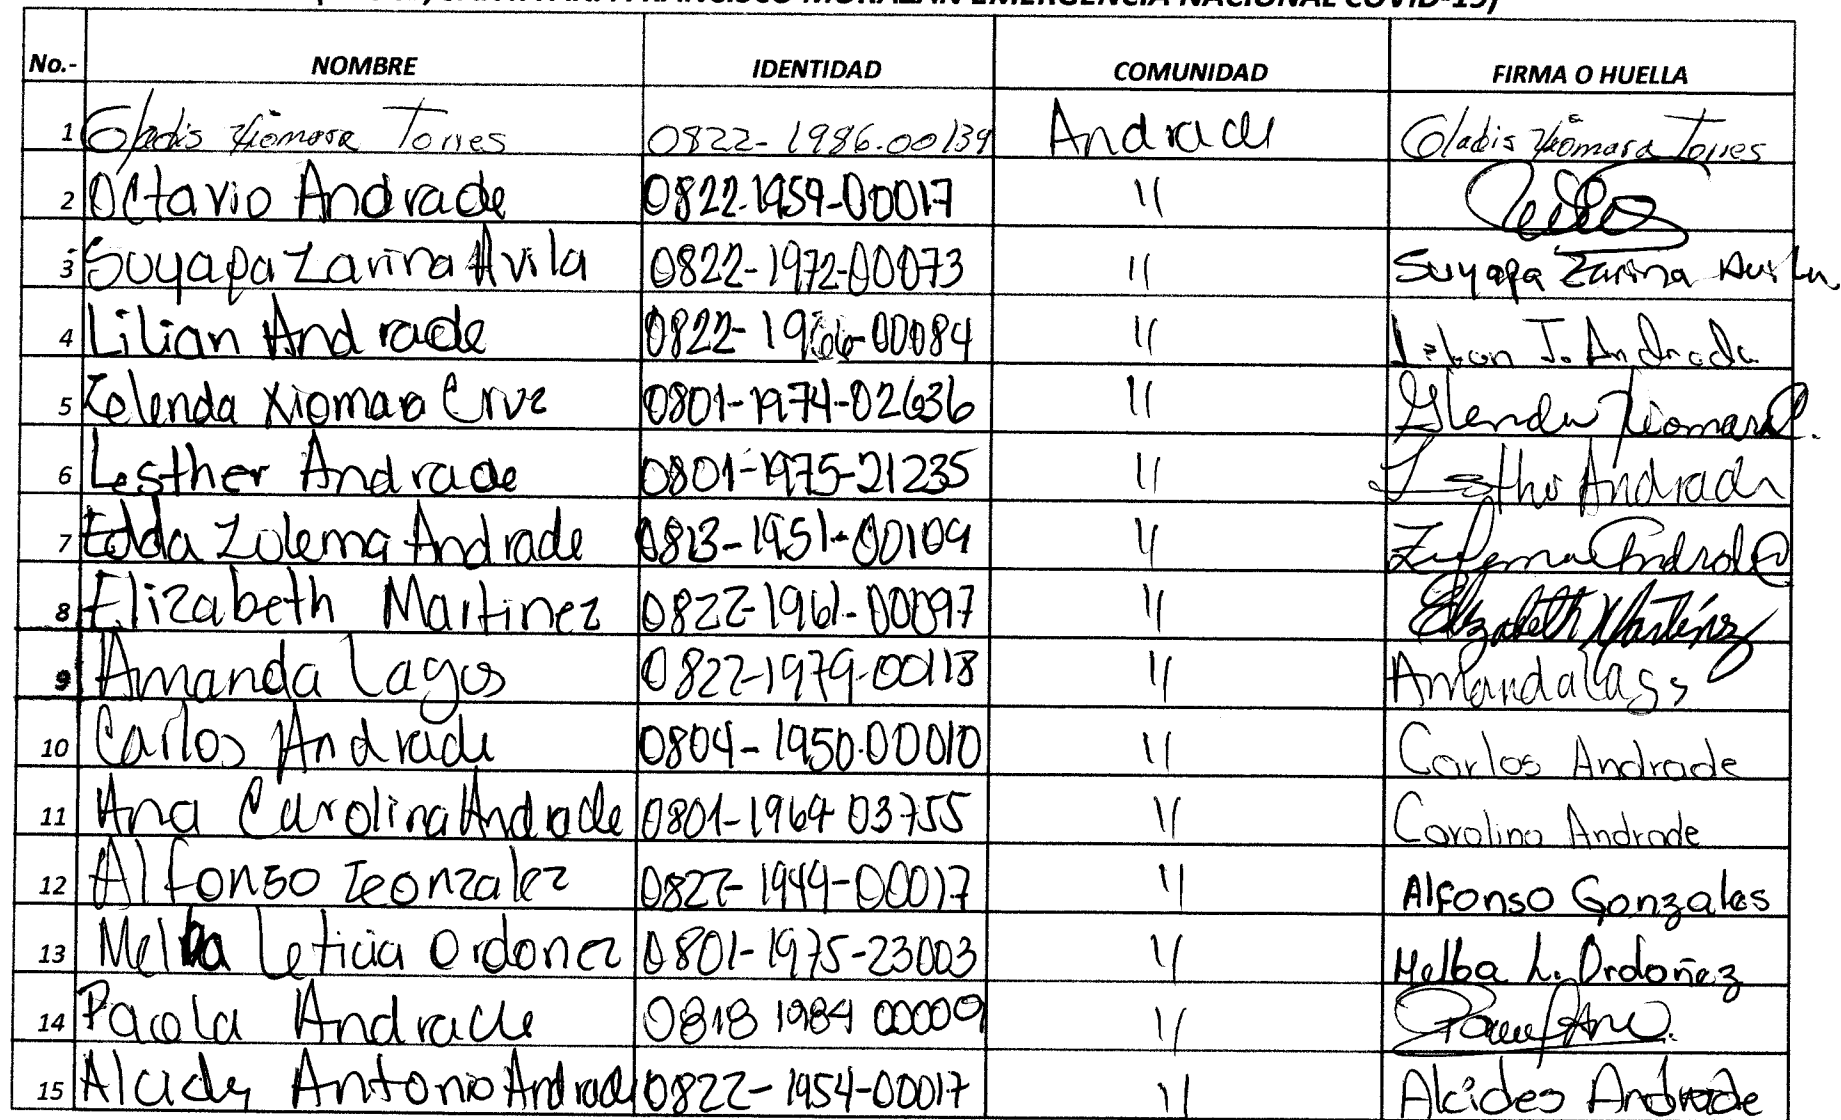 SANTA ANA FRANCISCO MORAZAN EMERGENCIA NACIONAL COVID-19)
No.- NOMBRE IDENTIDAD COMUNIDAD FIRMA O HUELLA
1 Gladis Xiomara Torres 0822-1986-00139 Andrade Gladis Xiomara Torres
2 Octavio Andrade 0822-1959-00017 "
3 Suyapa Zarina Avila 0822-1972-00073 " Suyapa Zarina Avila
4 Lilian Andrade 0822-1966-00084 " J. Andrade
5 Glenda Xiomara Cruz 0801-1974-02636 " Glenda Xiomara C.
6 Lesther Andrade 0801-1975-21235 " Lesther Andrade
7 Edda Zulema Andrade 0813-1951-00109 " Zulema Andrade
8 Elizabeth Martinez 0822-1961-00097 " Elizabeth Martínez
9 Amanda Lagos 0822-1979-00118 " Amanda Lagos
10 Carlos Andrade 0804-1950-00010 " Carlos Andrade
11 Ana Carolina Andrade 0801-1964-03755 " Carolina Andrade
12 Alfonso Gonzalez 0822-1949-00017 " Alfonso Gonzales
13 Melba Leticia Ordonez 0801-1975-23003 " Melba L. Ordoñez
14 Paola Andrade 0818 1984 00009 "
15 Alcides Antonio Andrade 0822-1954-00017 " Alcides Andrade